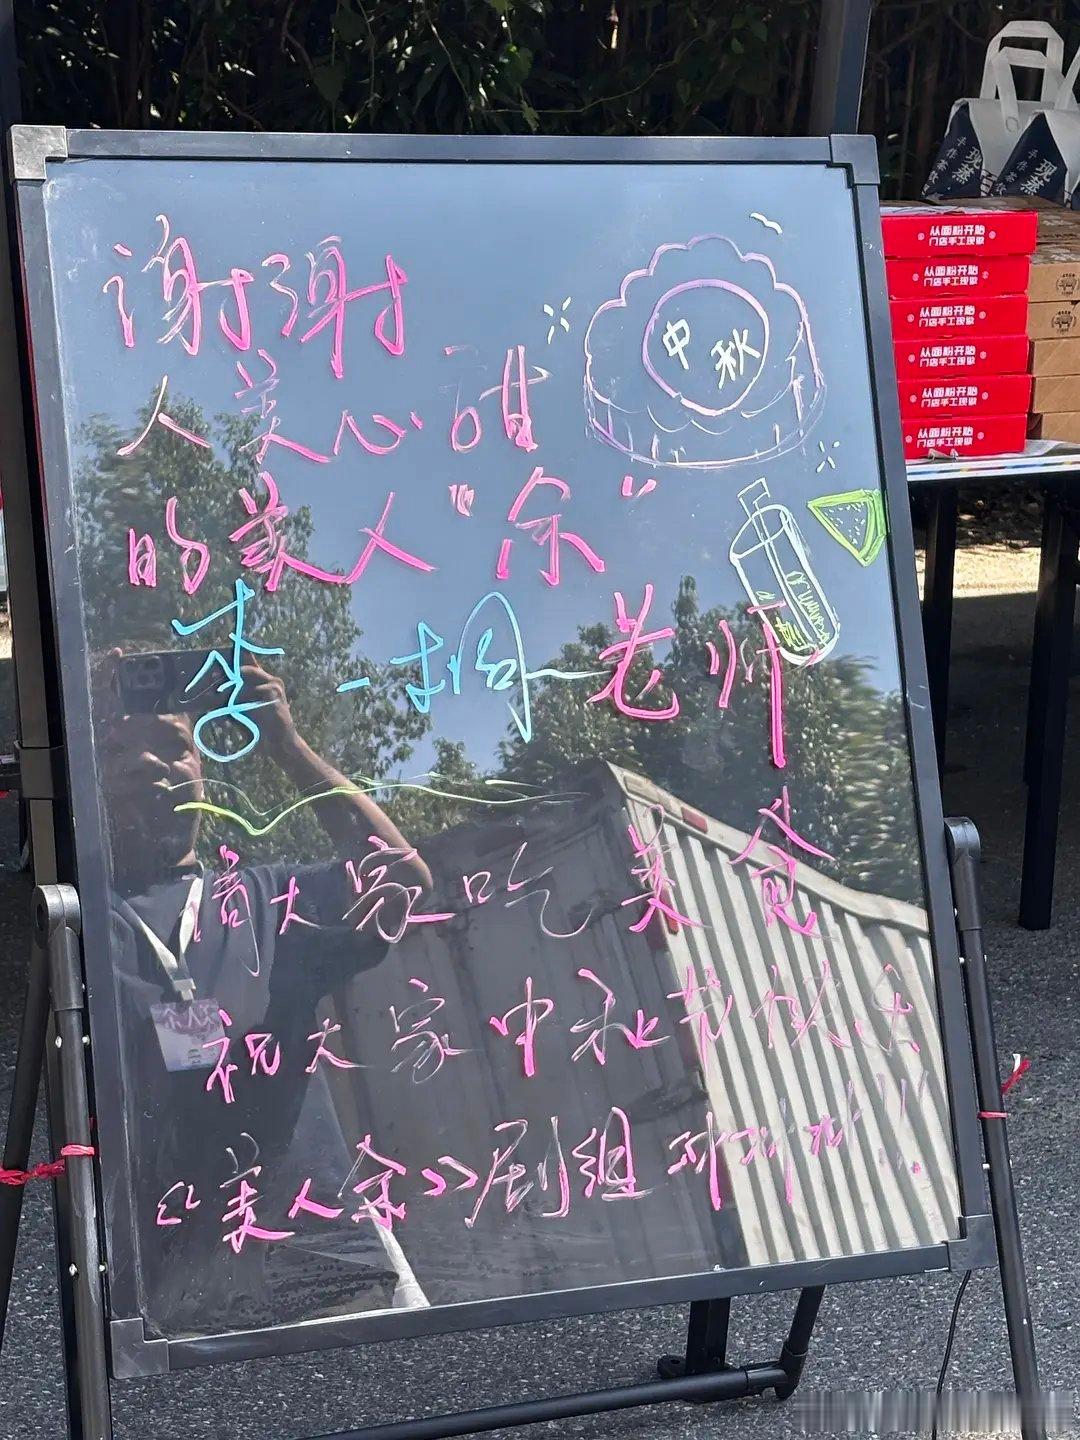 谢谢
人美心甜
的美人"余"
李一桐老师
请大家吃美食
祝大家中秋节快乐
《美人余》剧组冲冲冲!!!
中秋
现蒸
手作
现蒸
手作
从面粉开始
门店手工现做
从面粉开始
门店手工现做
从面粉开始
门店手工现做
从面粉开始
门店手工现做
从面粉开始
门店手工现做
从面粉开始
门店手工现做